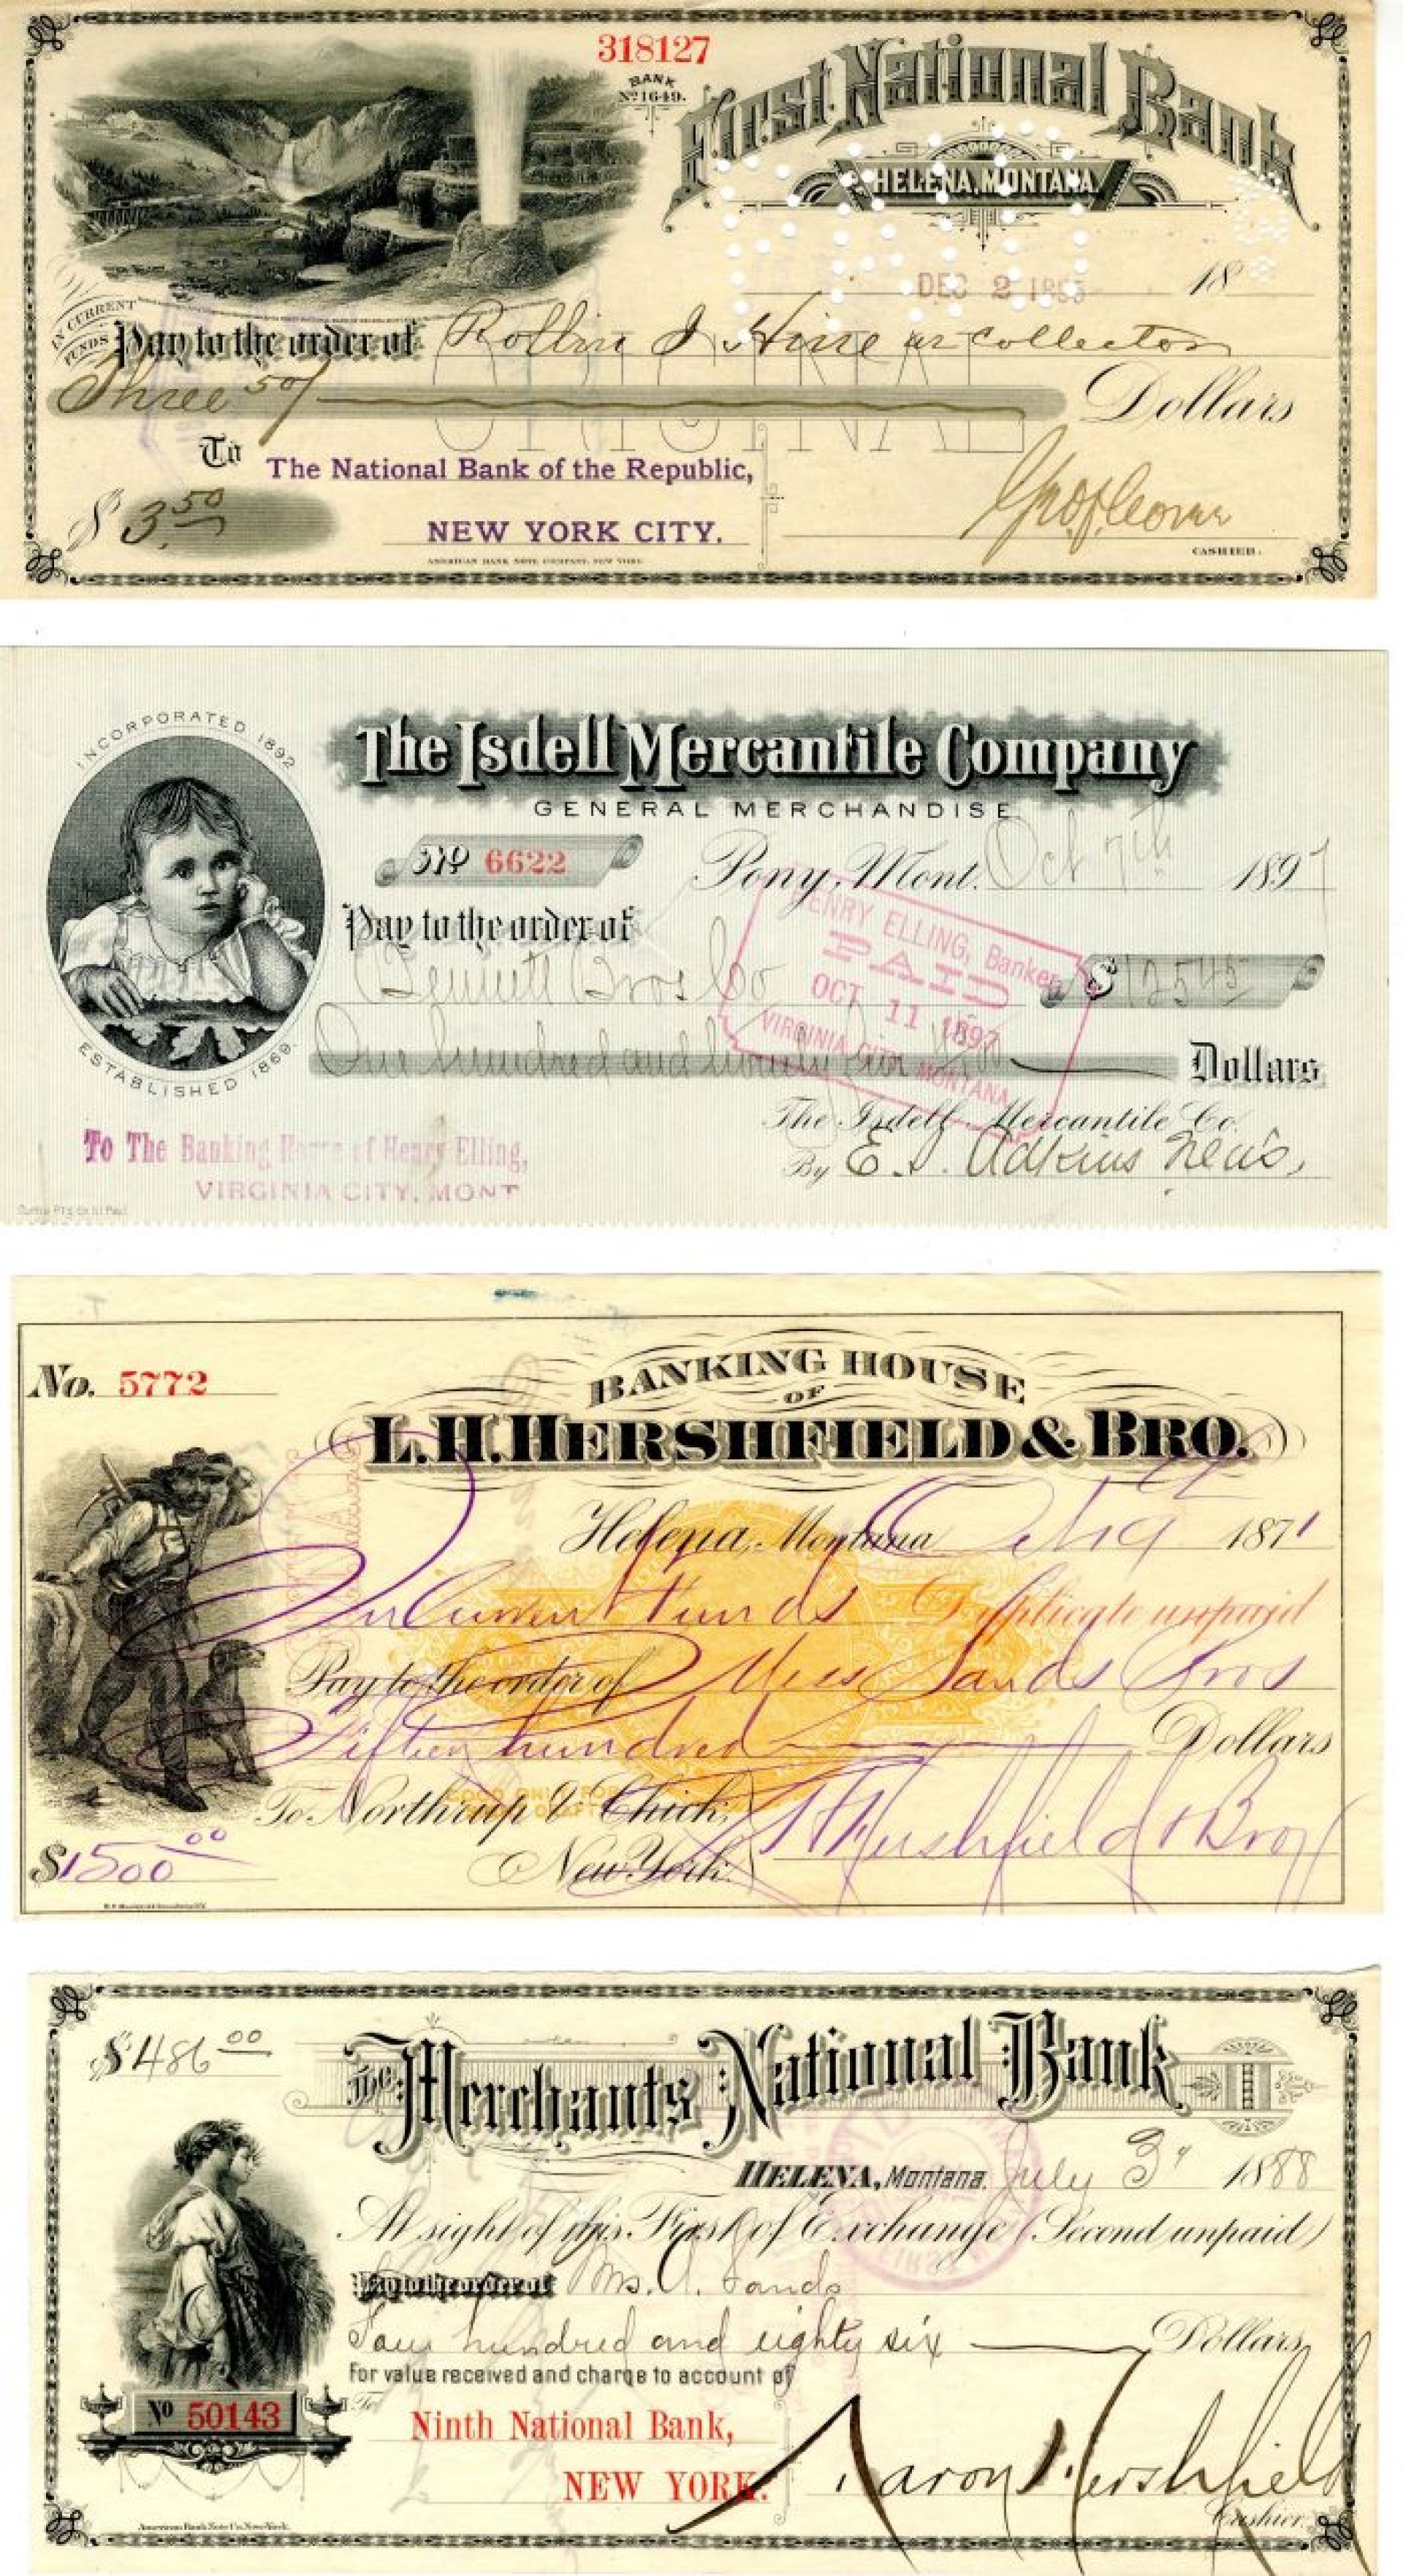 318127
BANK
No 1649.
First National Bank
HELENA, MONTANA.
DEC 2 1893 18
IN CURRENT FUNDS
Pay to the order of Rollin J. Hine as Collector
Three 50/ Dollars
ORIGINAL
To The National Bank of the Republic,
$ 3.50
NEW YORK CITY.
CASHIER.
AMERICAN BANK NOTE COMPANY, NEW YORK.
INCORPORATED 1892
The Isdell Mercantile Company
GENERAL MERCHANDISE
No 6622
Pony, Mont. Oct 7th 1897
Pay to the order of
Bennett Bros Co $ 125 45
One hundred and twenty five 45/100 Dollars
ESTABLISHED 1869.
HENRY ELLING, Banker
PAID
OCT 11 1897
VIRGINIA CITY MONTANA
The Isdell Mercantile Co.
To The Banking House of Henry Elling,
By E. D. Adkins
VIRGINIA CITY, MONT
No. 5772
BANKING HOUSE
OF
L.H. HERSHFIELD & BRO.
Helena, Montana Oct 19 1871
In Current Funds Duplicate unpaid
Pay to the order of Mess Sands Bros
Fifteen hundred Dollars
To Northrup & Chick,
New York.
L H Hershfield & Bro
$1500 00
$486 00
The Merchants National Bank
HELENA, Montana. July 3 1888
At sight of this First of Exchange (Second unpaid)
Pay to the order of Mrs. A. Sands
Four hundred and eighty six Dollars
For value received and charge to account of
No 50143
To
Ninth National Bank,
NEW YORK.
Aaron Hershfield
Cashier.
American Bank Note Co. New York.